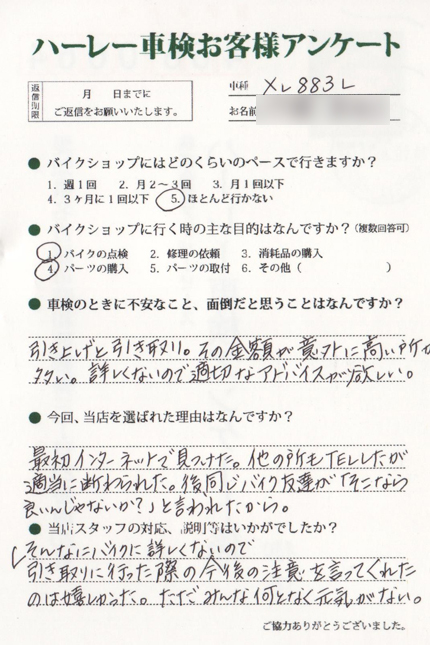 ハーレー車検お客様アンケート
返信期限
月　日までに
ご返信をお願いいたします。
車種 XL883L
お名前
● バイクショップにはどのくらいのペースで行きますか？
1. 週1回　2. 月2～3回　3. 月1回以下
4. 3ヶ月に1回以下　5. ほとんど行かない
● バイクショップに行く時の主な目的はなんですか？（複数回答可）
1. バイクの点検　2. 修理の依頼　3. 消耗品の購入
4. パーツの購入　5. パーツの取付　6. その他（　　　）
● 車検のときに不安なこと、面倒だと思うことはなんですか？
引き上げと引き取り。その金額が意外に高い所が
多い。詳しくないので適切なアドバイスが欲しい。
● 今回、当店を選ばれた理由はなんですか？
最初インターネットで見つけた。他の所もTELしたが
適当に断わられた。後、同じバイク友達が「そこなら
良いんじゃないか？」と言われたから。
● 当店スタッフの対応、説明等はいかがでしたか？
そんなにバイクに詳しくないので
引き取りに行った際の今後の注意を言ってくれた
のは嬉しかった。ただみんな何となく元気がない。
ご協力ありがとうございました。